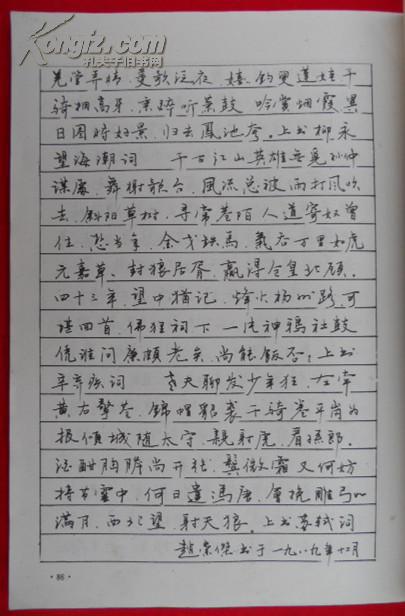 孔夫子旧书网
羌管弄晴、菱歌泛夜、嬉嬉钓叟莲娃、千
骑拥高牙、乘醉听箫鼓 吟赏烟霞、异
日图将好景、归去凤池夸。上书柳永
望海潮词 千古江山英雄无觅孙仲
谋处、舞榭歌台、风流总被雨打风吹
去、斜阳草树、寻常巷陌人道寄奴曾
住、想当年、金戈铁马、气吞万里如虎
元嘉草草、封狼居胥、赢得仓皇北顾。
四十三年、望中犹记、烽火扬州路、可
堪回首、佛狸祠下 一片神鸦社鼓
凭谁问廉颇老矣、尚能饭否?上书
辛弃疾词 老夫聊发少年狂 左牵
黄右擎苍、锦帽貂裘千骑卷平岗为
报倾城随太守、亲射虎、看孙郎。
酒酣胸胆尚开张、鬓微霜又何妨
持节云中、何日遣冯唐、会挽雕弓如
满月、西北望、射天狼。上书苏轼词
赵 杰书于一九八九年十二月
·86·